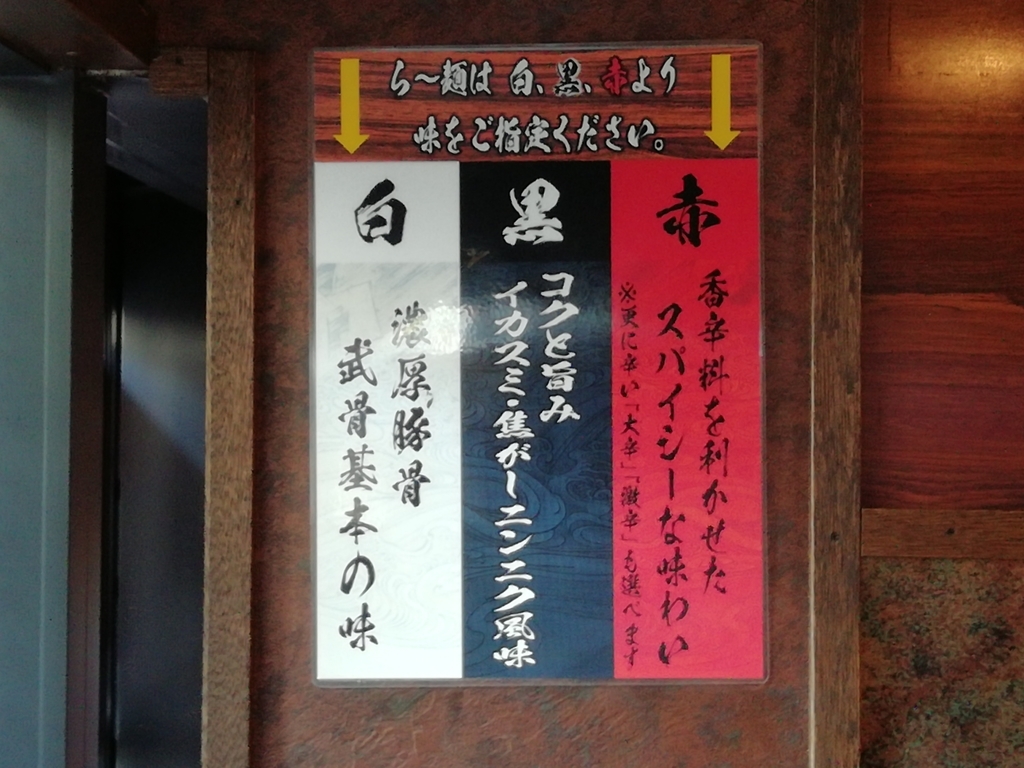 ら～麺は 白、黒、赤より
味をご指定ください。
赤
香辛料を利かせた
スパイシーな味わい
※更に辛い「大辛」「激辛」も選べます
黒
コクと旨み
イカスミ・焦がしニンニク風味
白
濃厚豚骨
武骨基本の味